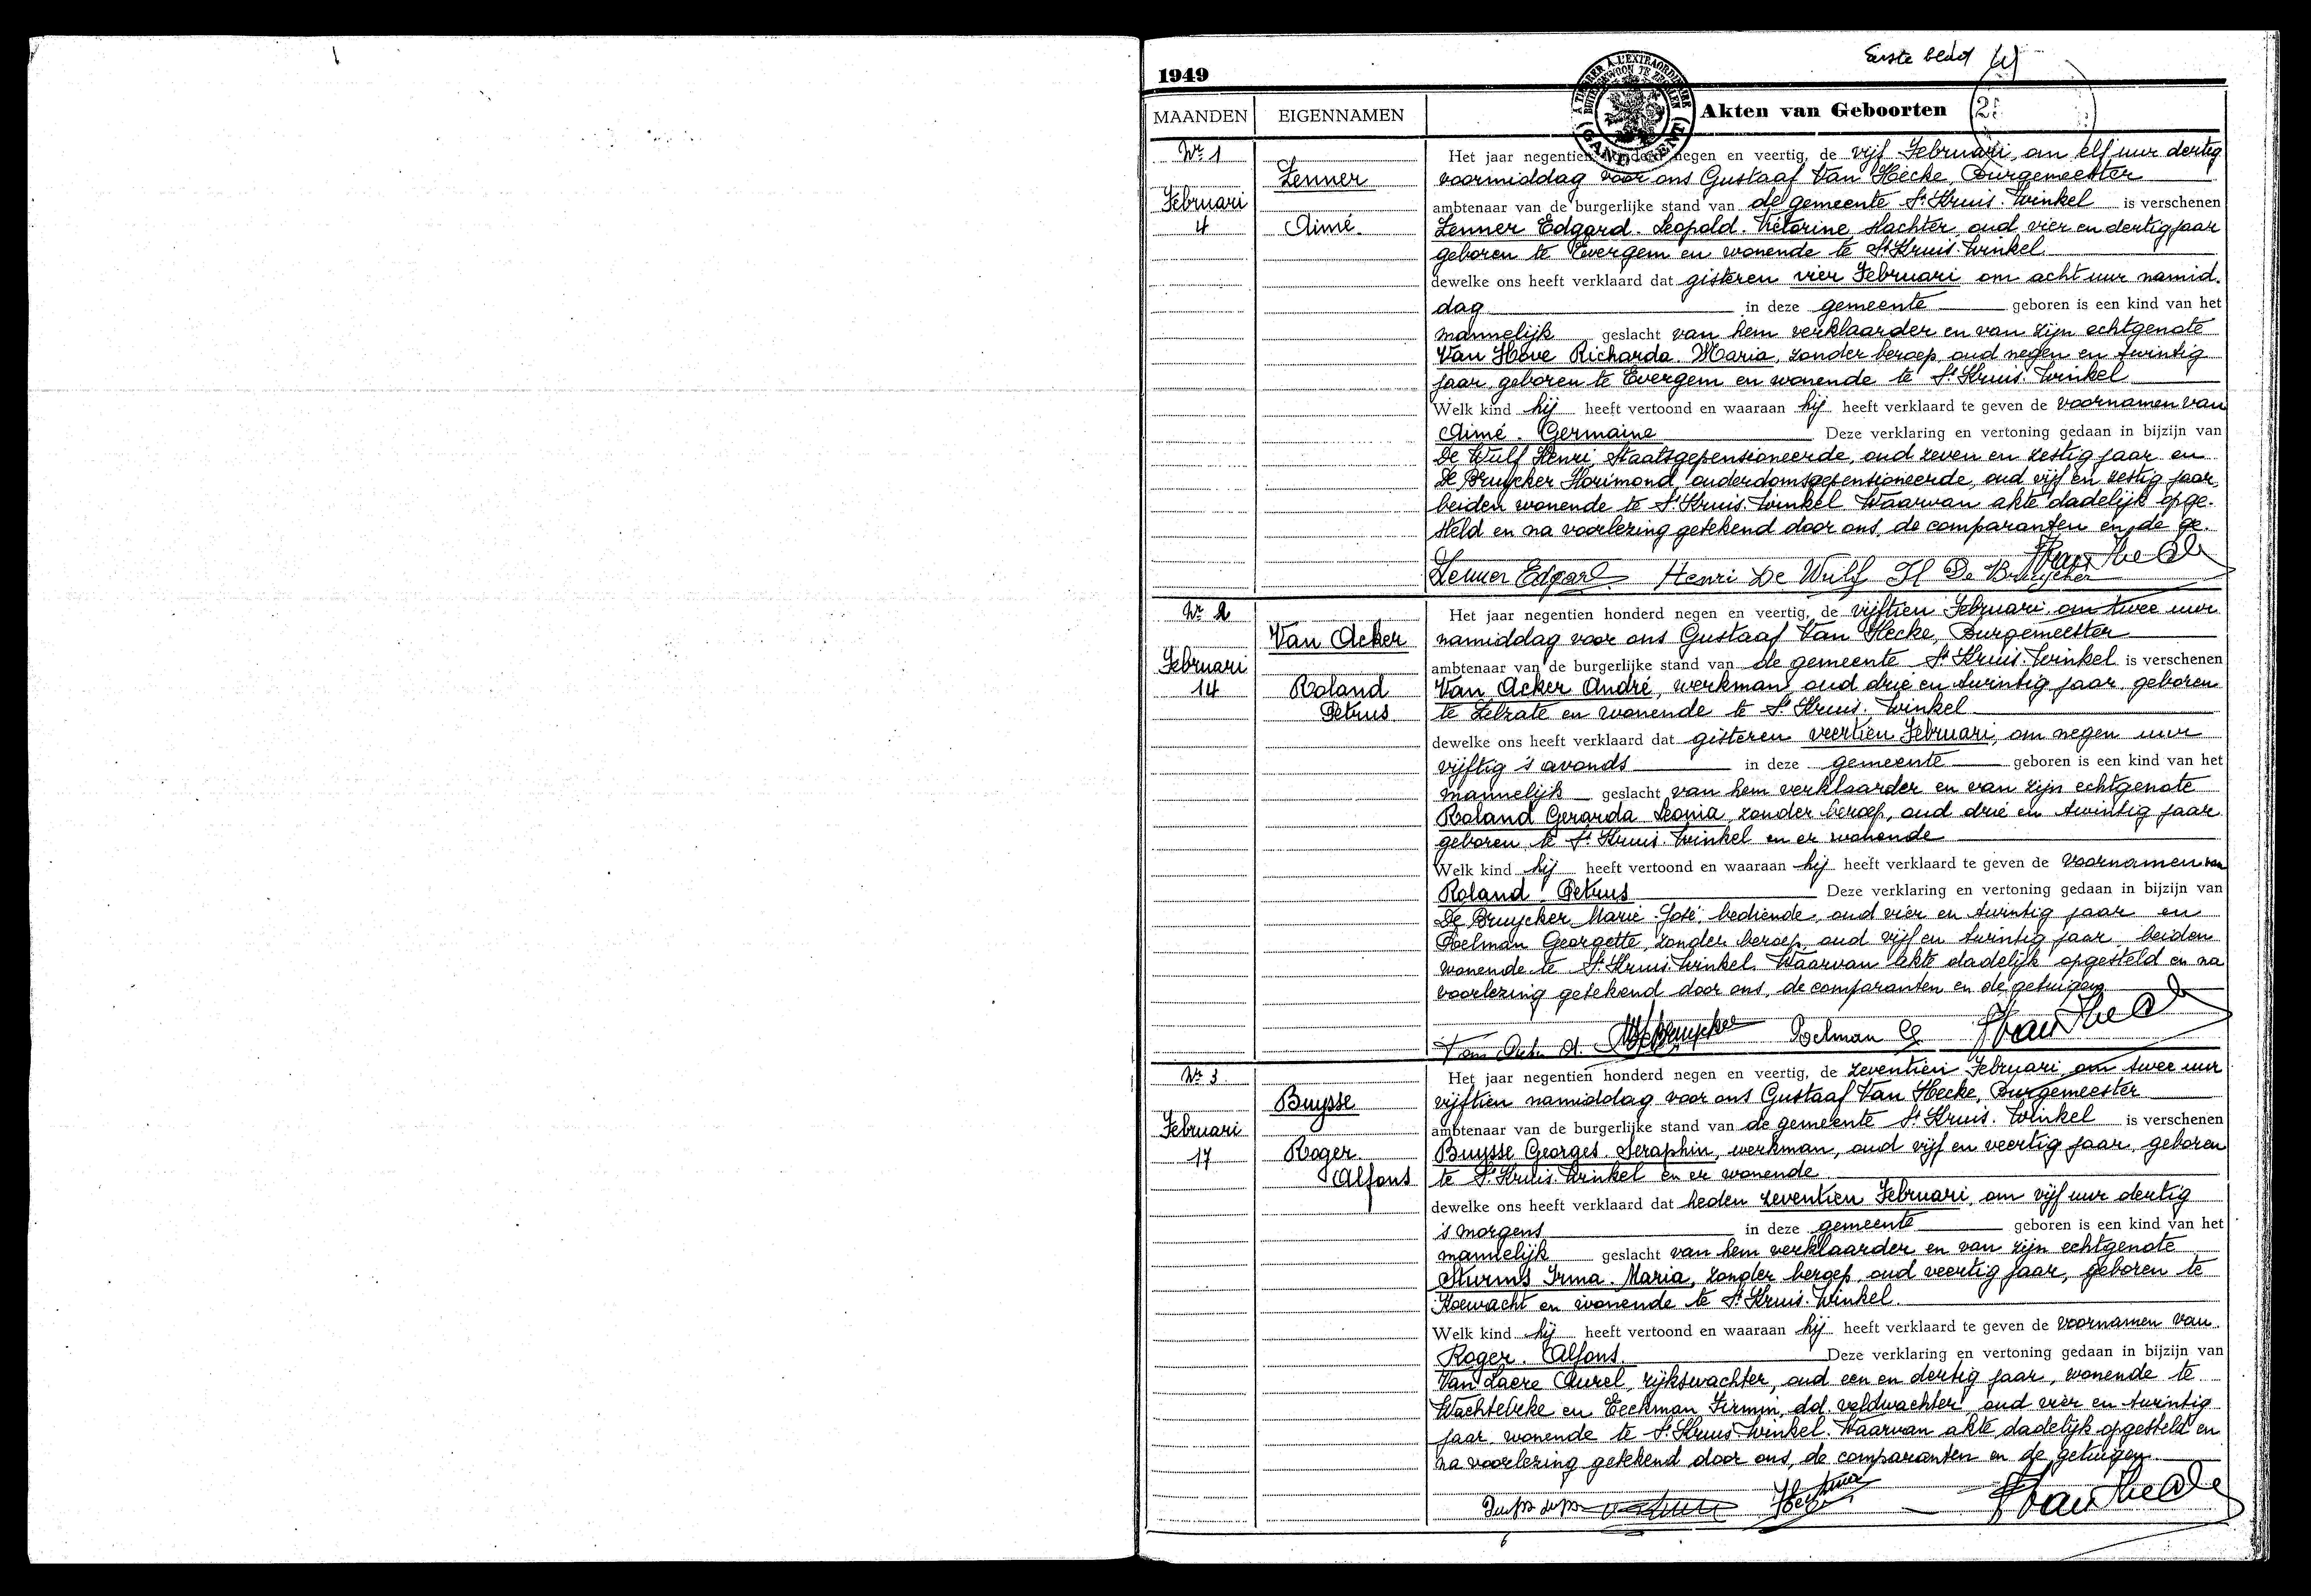 1949
Eerste blad
A TIMBRER A L'EXTRAORDINAIRE
BUITENGEWOON TE ZEGELEN
GAND GENT
MAANDEN EIGENNAMEN Akten van Geboorten
Nr 1
Februari
4
Zenner
Aimé
Het jaar negentien honderd negen en veertig, de vijf Februari, om elf uur dertig
voormiddag voor ons Gustaaf Van Hecke, Burgemeester
ambtenaar van de burgerlijke stand van de gemeente St Kruis-Winkel is verschenen
Zenner Edgard. Leopold. Victorine, slachter, oud vier en dertig jaar
geboren te Evergem en wonende te St Kruis-Winkel
dewelke ons heeft verklaard dat gisteren vier Februari om acht uur namid.
dag in deze gemeente geboren is een kind van het
mannelijk geslacht van hem verklaarder en van zijn echtgenote
Van Hove Richarda. Maria, zonder beroep, oud negen en twintig
jaar, geboren te Evergem en wonende te St Kruis-Winkel
Welk kind hij heeft vertoond en waaraan hij heeft verklaard te geven de voornamen van
Aimé. Germaine Deze verklaring en vertoning gedaan in bijzijn van
De Wulf Henri, Staatsgepensioneerde, oud zeven en zestig jaar en
De Bruycker Florimond, ouderdomsgepensioneerde, oud vijf en zestig jaar,
beiden wonende te St Kruis-Winkel Waarvan akte dadelijk opge-
steld en na voorlezing getekend door ons, de comparanten en de ge.
Zenner Edgard Henri De Wulf Fl De Bruycker
Nr 2
Februari
14
Van Acker
Roland
Petrus
Het jaar negentien honderd negen en veertig, de vijftien Februari, om twee uur
namiddag voor ons Gustaaf Van Hecke, Burgemeester
ambtenaar van de burgerlijke stand van de gemeente St Kruis-Winkel is verschenen
Van Acker André, werkman, oud drie en twintig jaar, geboren
te Zelzate en wonende te St Kruis-Winkel
dewelke ons heeft verklaard dat gisteren veertien Februari, om negen uur
vijftig 's avonds in deze gemeente geboren is een kind van het
mannelijk geslacht van hem verklaarder en van zijn echtgenote
Roland Gerarda Leonia, zonder beroep, oud drie en twintig jaar
geboren te St Kruis-Winkel en er wonende
Welk kind hij heeft vertoond en waaraan hij heeft verklaard te geven de voornamen van
Roland. Petrus Deze verklaring en vertoning gedaan in bijzijn van
De Bruycker Marie-José, bediende, oud vier en twintig jaar en
Poelman Georgette, zonder beroep, oud vijf en twintig jaar beiden
wonende te St Kruis-Winkel. Waarvan akte dadelijk opgesteld en na
voorlezing getekend door ons, de comparanten en de getuigen
Van Acker A. De Bruycker Poelman G
Nr 3
Februari
17
Buysse
Roger
Alfons
Het jaar negentien honderd negen en veertig, de zeventien Februari, om twee uur
vijftien namiddag voor ons Gustaaf Van Hecke, Burgemeester
ambtenaar van de burgerlijke stand van de gemeente St Kruis-Winkel is verschenen
Buysse Georges. Seraphin, werkman, oud vijf en veertig jaar, geboren
te St Kruis-Winkel en er wonende
dewelke ons heeft verklaard dat heden zeventien Februari, om vijf uur dertig
's morgens in deze gemeente geboren is een kind van het
mannelijk geslacht van hem verklaarder en van zijn echtgenote
Sturms Irma. Maria, zonder beroep, oud veertig jaar, geboren te
Koewacht en wonende te St Kruis-Winkel
Welk kind hij heeft vertoond en waaraan hij heeft verklaard te geven de voornamen van
Roger. Alfons. Deze verklaring en vertoning gedaan in bijzijn van
Van Laere Aurel, rijkswachter, oud een en dertig jaar, wonende te
Wachtebeke en Eeckman Firmin, dd. veldwachter, oud vier en twintig
jaar, wonende te St Kruis-Winkel. Waarvan akte dadelijk opgesteld en
na voorlezing getekend door ons, de comparanten en de getuigen